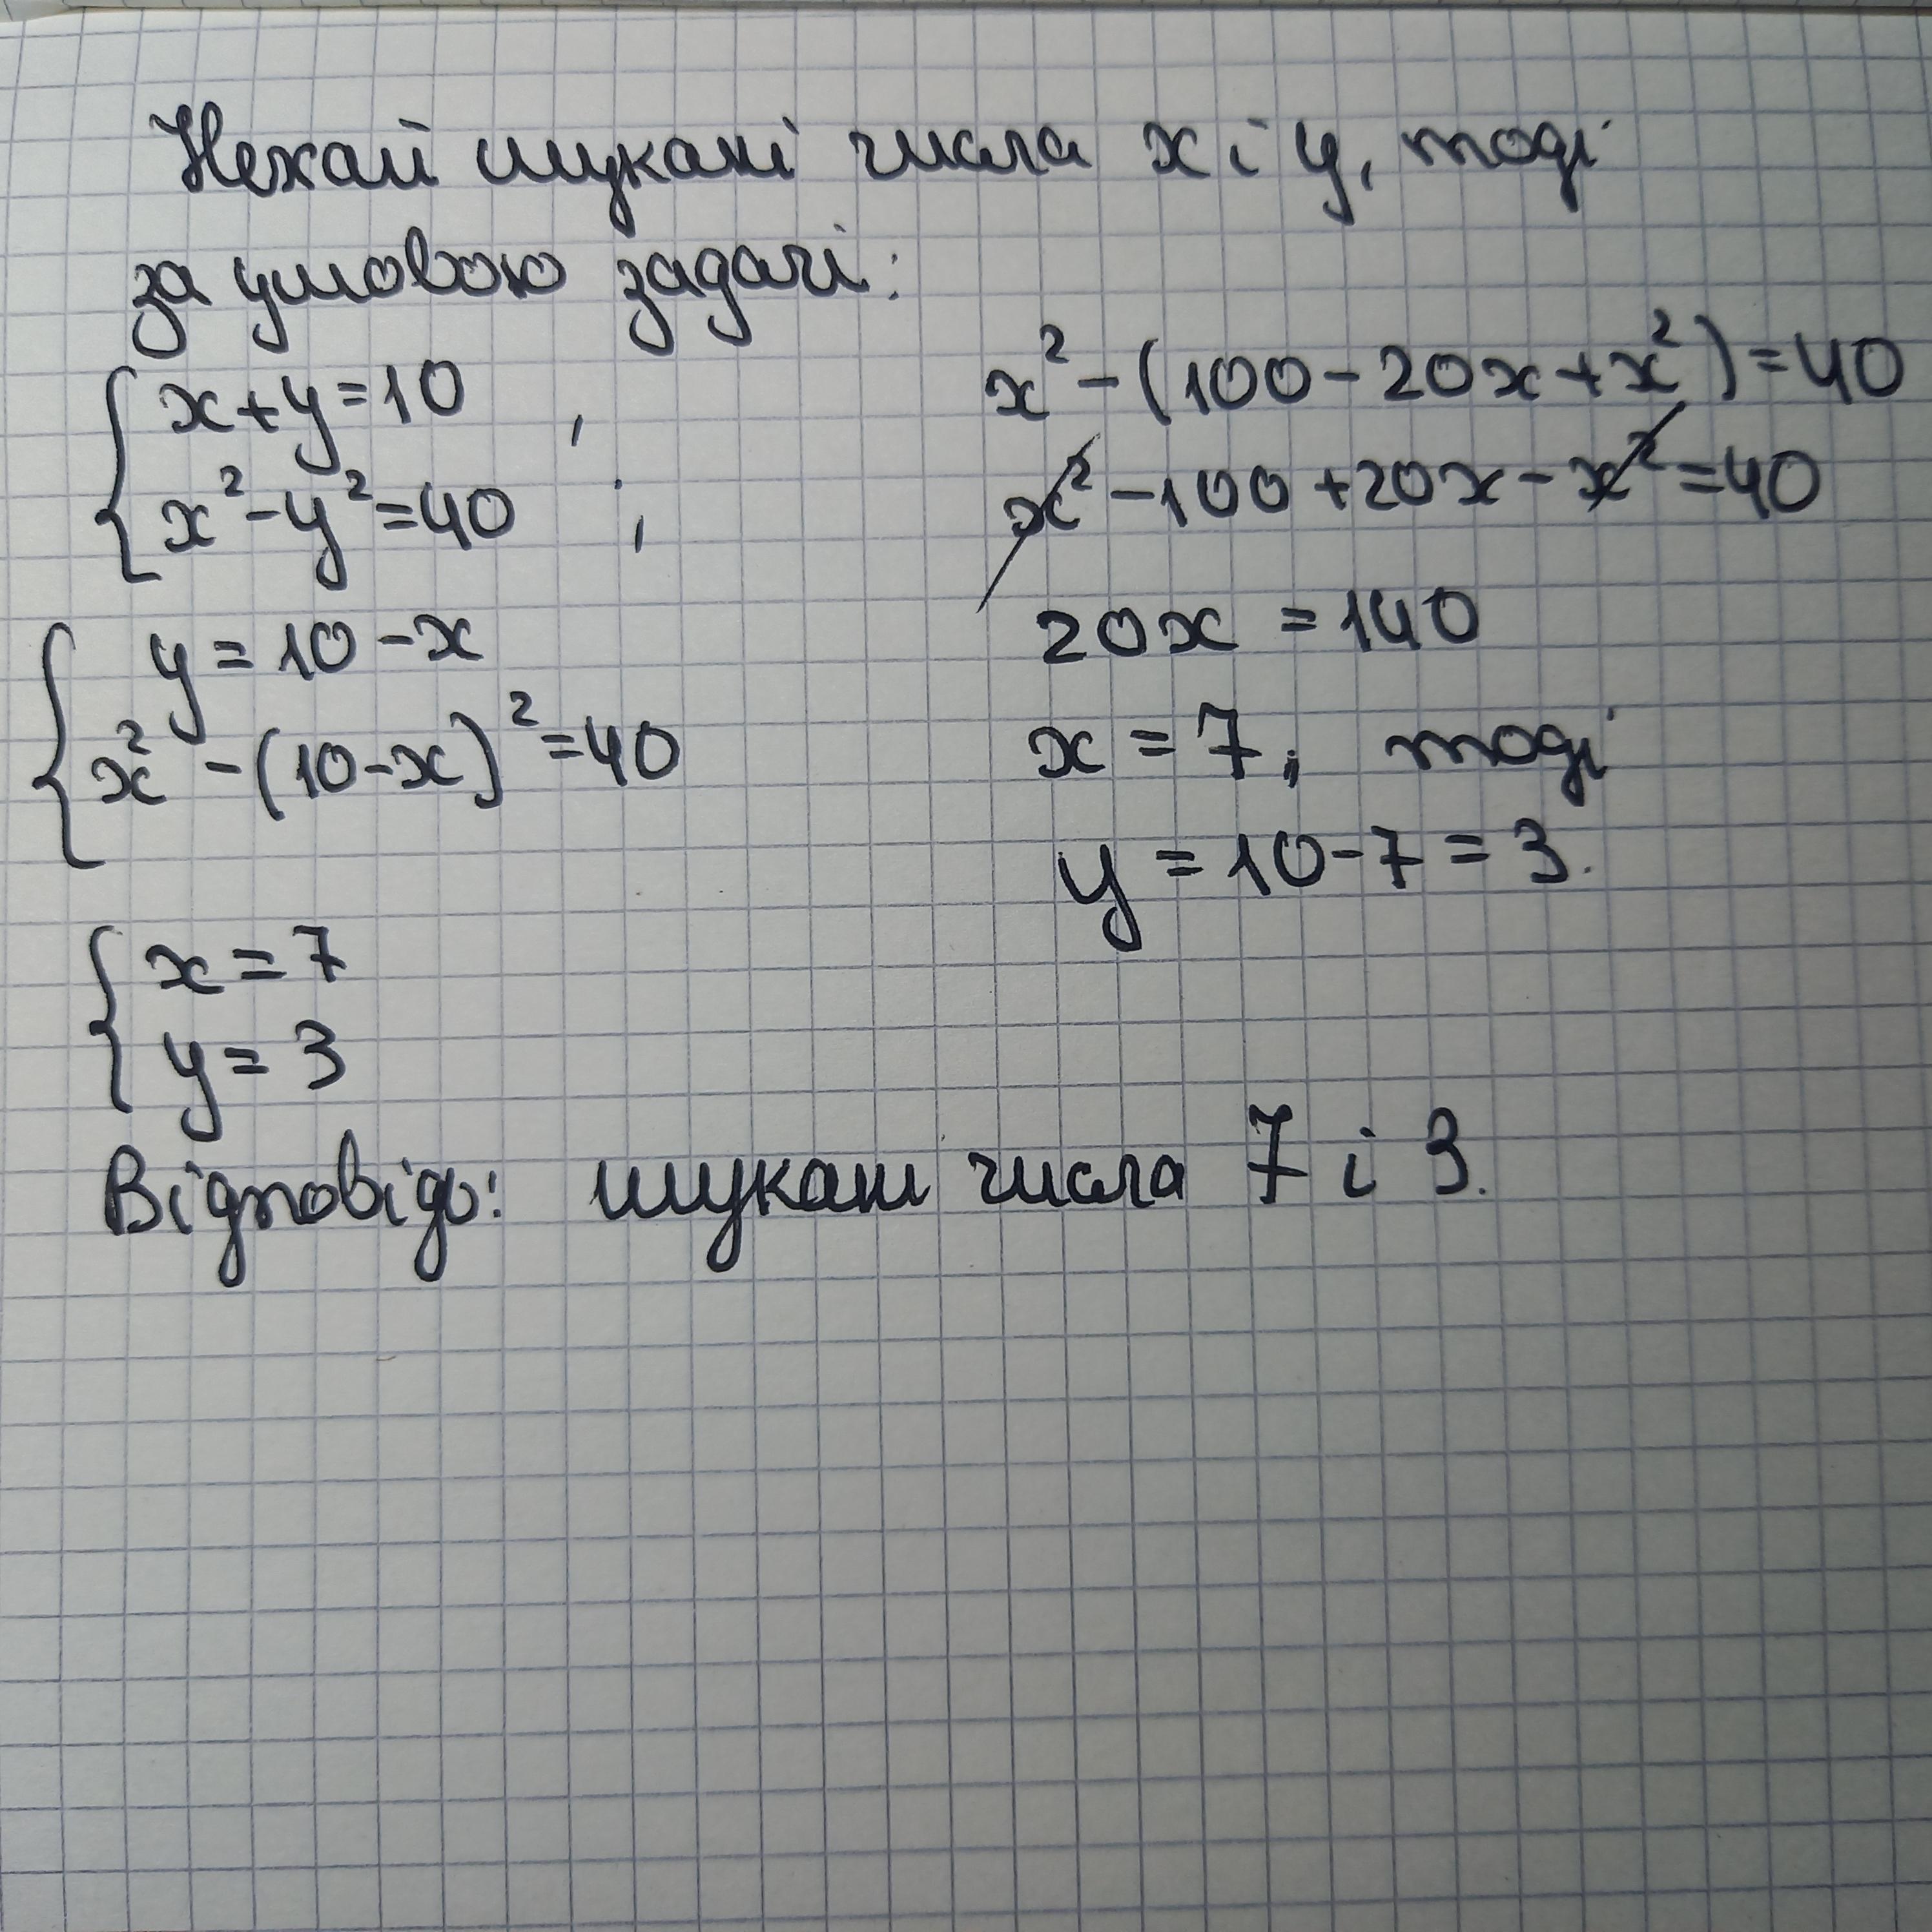 Нехай шукані числа x і y, тоді
за умовою задачі:
x+y=10 ,
x²-y²=40 ;
y=10-x
x²-(10-x)²=40
x²-(100-20x+x²)=40
x²-100+20x-x²=40
20x=140
x=7, тоді
y=10-7=3.
x=7
y=3
Відповідь: шукані числа 7 і 3.